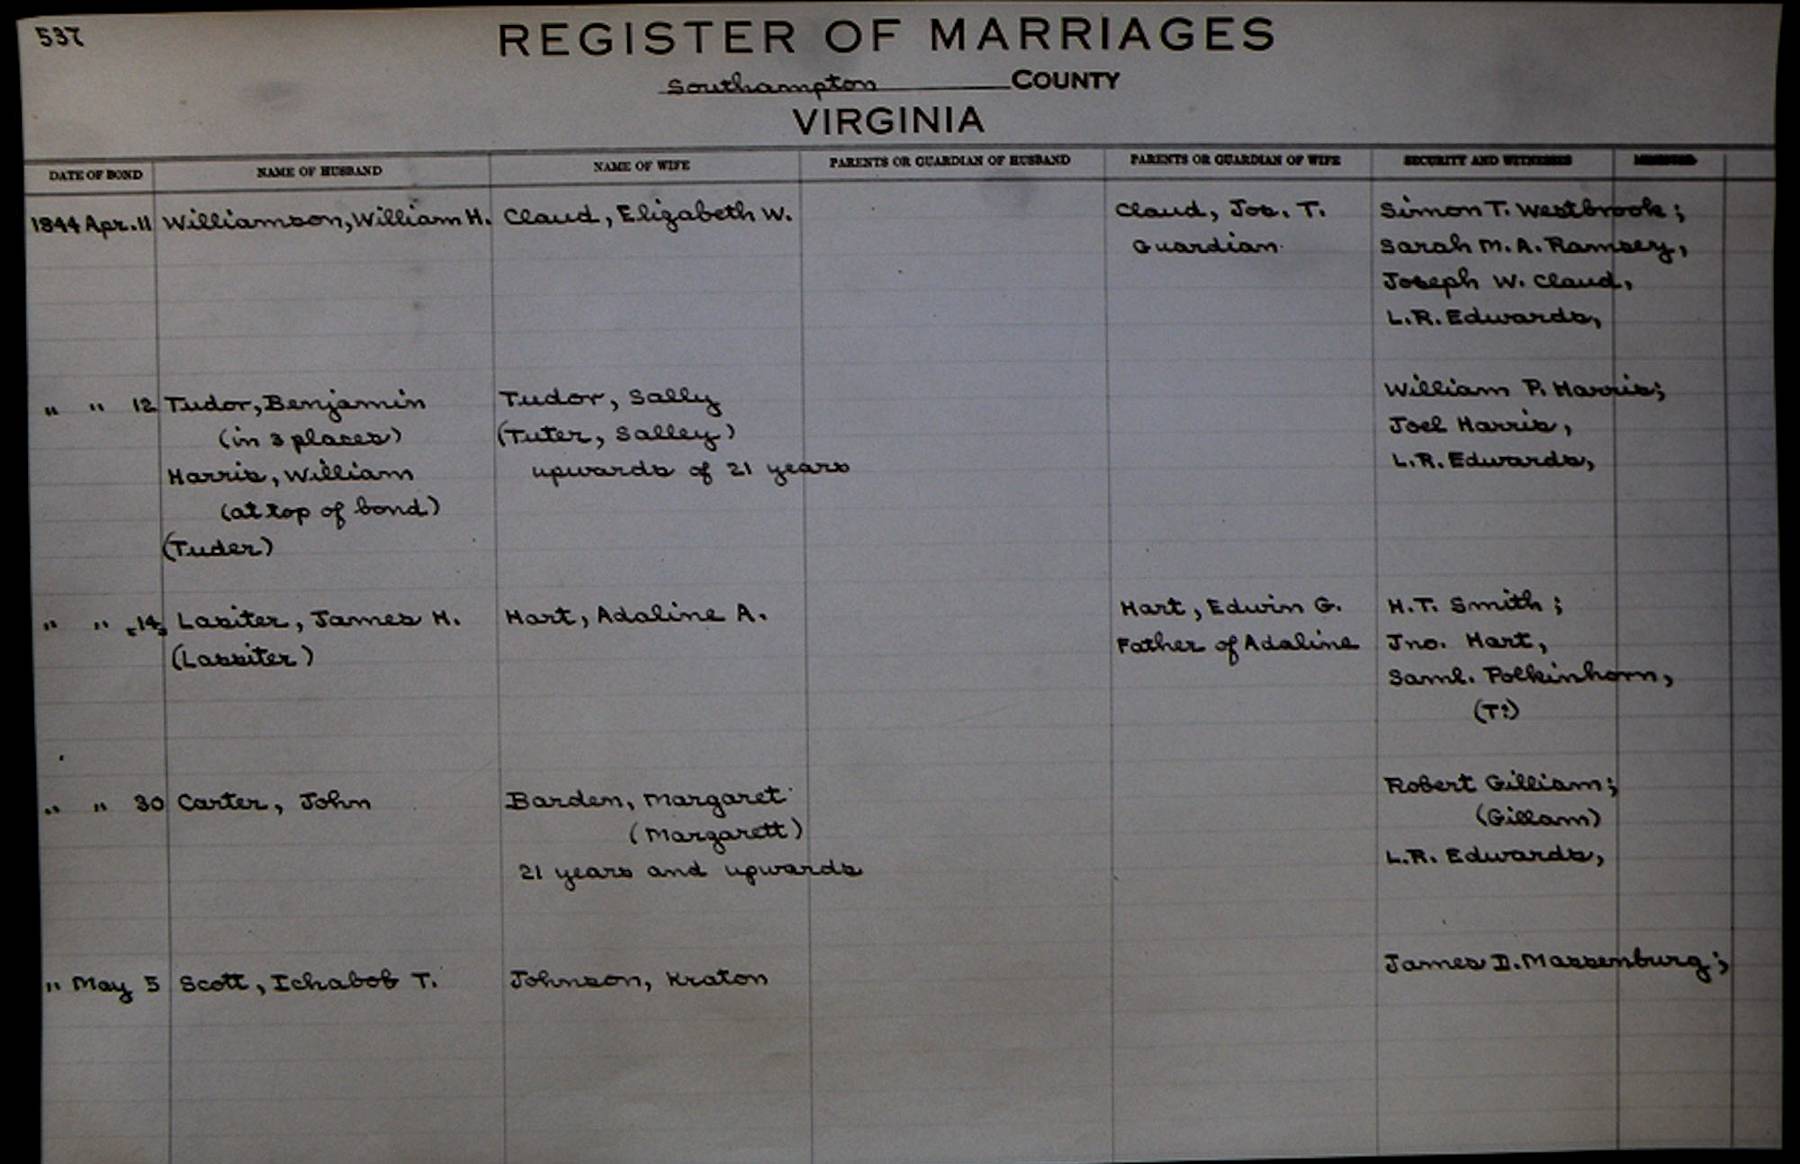 537
REGISTER OF MARRIAGES
Southampton COUNTY
VIRGINIA
DATE OF BOND NAME OF HUSBAND NAME OF WIFE PARENTS OR GUARDIAN OF HUSBAND PARENTS OR GUARDIAN OF WIFE SECURITY AND WITNESSES
1844 Apr. 11 Williamson, William H. Claud, Elizabeth W. Claud, Jos. T. Simon T. Westbrook;
Guardian Sarah M. A. Ramsey,
Joseph W. Claud,
L.R. Edwards,
" " 12 Tudor, Benjamin Tudor, Sally William P. Harris;
(in 3 places) (Tuter, Salley) Joel Harris,
Harris, William upwards of 21 years L.R. Edwards,
(at top of bond)
(Tuder)
" " 14 Lasiter, James H. Hart, Adaline A. Hart, Edwin G. H.T. Smith;
(Lassiter) Father of Adaline Jno. Hart,
Saml. Polkinhorn,
(T?)
" " 30 Carter, John Barden, Margaret Robert Gilliam;
(Margarett) (Gillam)
21 years and upwards L.R. Edwards,
" May 5 Scott, Ichabob T. Johnson, Kraton James D. Massenburg;